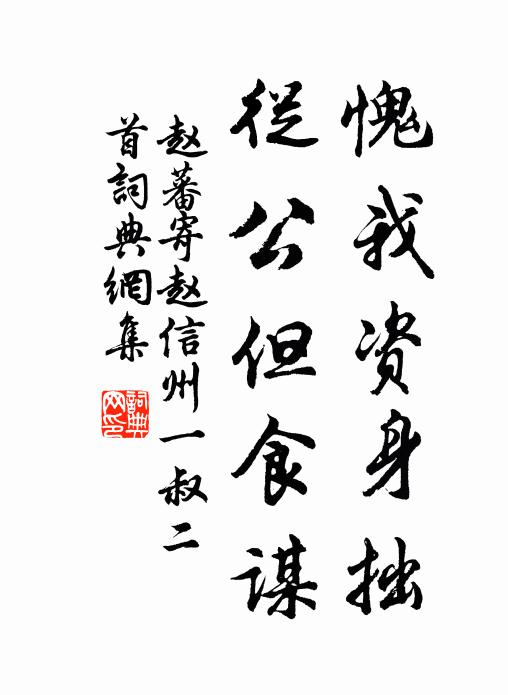 愧我资身拙
從公但食谋
赵蕃寄赵信州一叔二
首詞典網集
詞典网印